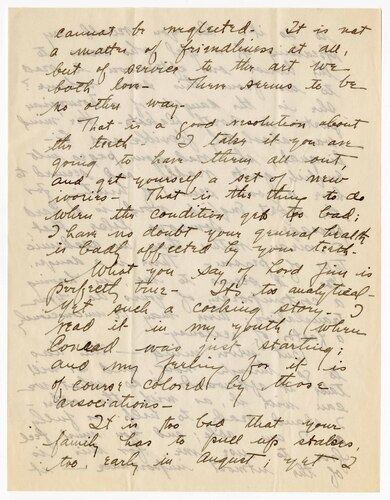 cannot be neglected. It is not
a matter of friendliness at all,
but of service to the art we
both love - There seems to be
no other way -
That is a good resolution about
the teeth I take it you are
going to have them all out,
and get yourself a set of new
ivories - That is the thing to do
when the condition gets too bad;
I have no doubt your general health
is badly affected by your teeth -
What you say of Lord Jim is
perfectly true - It's too analytical -
Yet such a corking story. I
read it in my youth, when
Conrad was just starting;
and my feeling for it is
of course colored by those
associations -
It is too bad that your
family has to pull up stakes,
too, early in August; yet I